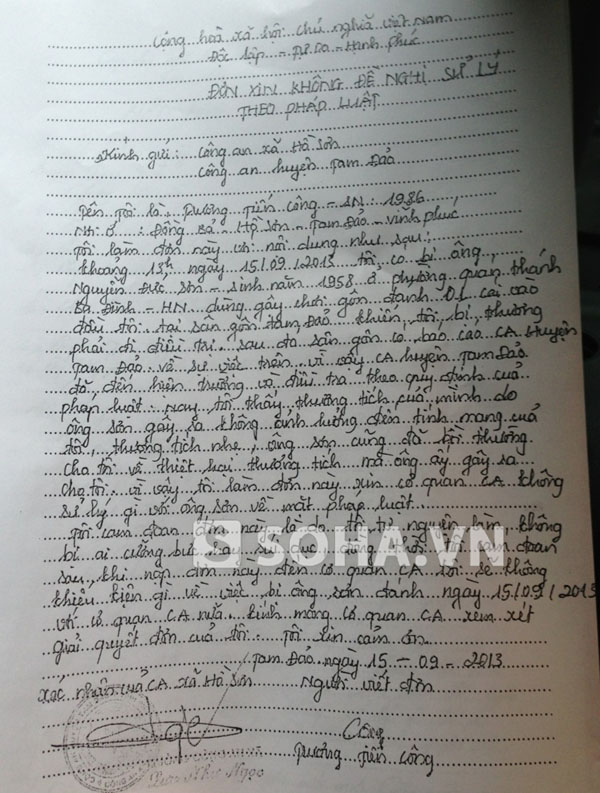 Cộng hoà xã hội chủ nghĩa việt Nam
Độc lập - Tự Do - Hạnh phúc
ĐƠN XIN KHÔNG ĐỀ NGHỊ SỬ LÝ
THEO PHÁP LUẬT
Kính gửi: Công an xã Hồ Sơn
Công an huyện Tam Đảo
Tên tôi là: Trương Tiến Công - SN: 1986
Nơi ở: Đồng Bả - Hồ Sơn - Tam Đảo - Vĩnh phúc
Tôi làm đơn này với nội dung như sau:
Khoảng 13h ngày 15/09/2013 tôi có bị ông
Nguyễn Đức Sơn - Sinh năm 1958 ở phường quan thánh
Ba Đình - HN dùng gậy chơi gôn đánh 01 cái vào
đầu tôi tại sân gôn tam Đảo khiến tôi bị thương
phải đi điều trị. sau đó sân gôn có báo cáo CA Huyện
Tam Đảo về sự việc trên vì vậy CA huyện Tam Đảo
đã đến hiện trường và điều tra theo quy định của
pháp luật. nay tôi thấy thương tích của mình do
ông Sơn gây ra không ảnh hưởng đến tính mạng của
tôi, thương tích nhẹ, ông Sơn cũng đã bồi thường
Cho tôi về thiệt hại thương tích mà ông ấy gây ra
Cho tôi. vì vậy tôi làm đơn này xin cơ quan CA không
sử lý gì với ông Sơn về mặt pháp luật.
Tôi cam đoan đơn này là do tôi tự nguyện không
bị ai cưỡng bức hay đồng thời tôi cam đoan
sau khi nộp đơn này đến cơ quan CA tôi sẽ không
khiếu kiện gì về việc bị ông Sơn đánh ngày 15/09/2013
với cơ quan CA nữa. kính mong cơ quan CA xem xét
giải quyết đơn của tôi. Tôi xin cảm ơn.
Tam Đảo ngày 15 - 09 - 2013
Xác nhận của CA xã Hồ Sơn Người viết đơn
Công
Trương Tiến Công
SOHA.VN